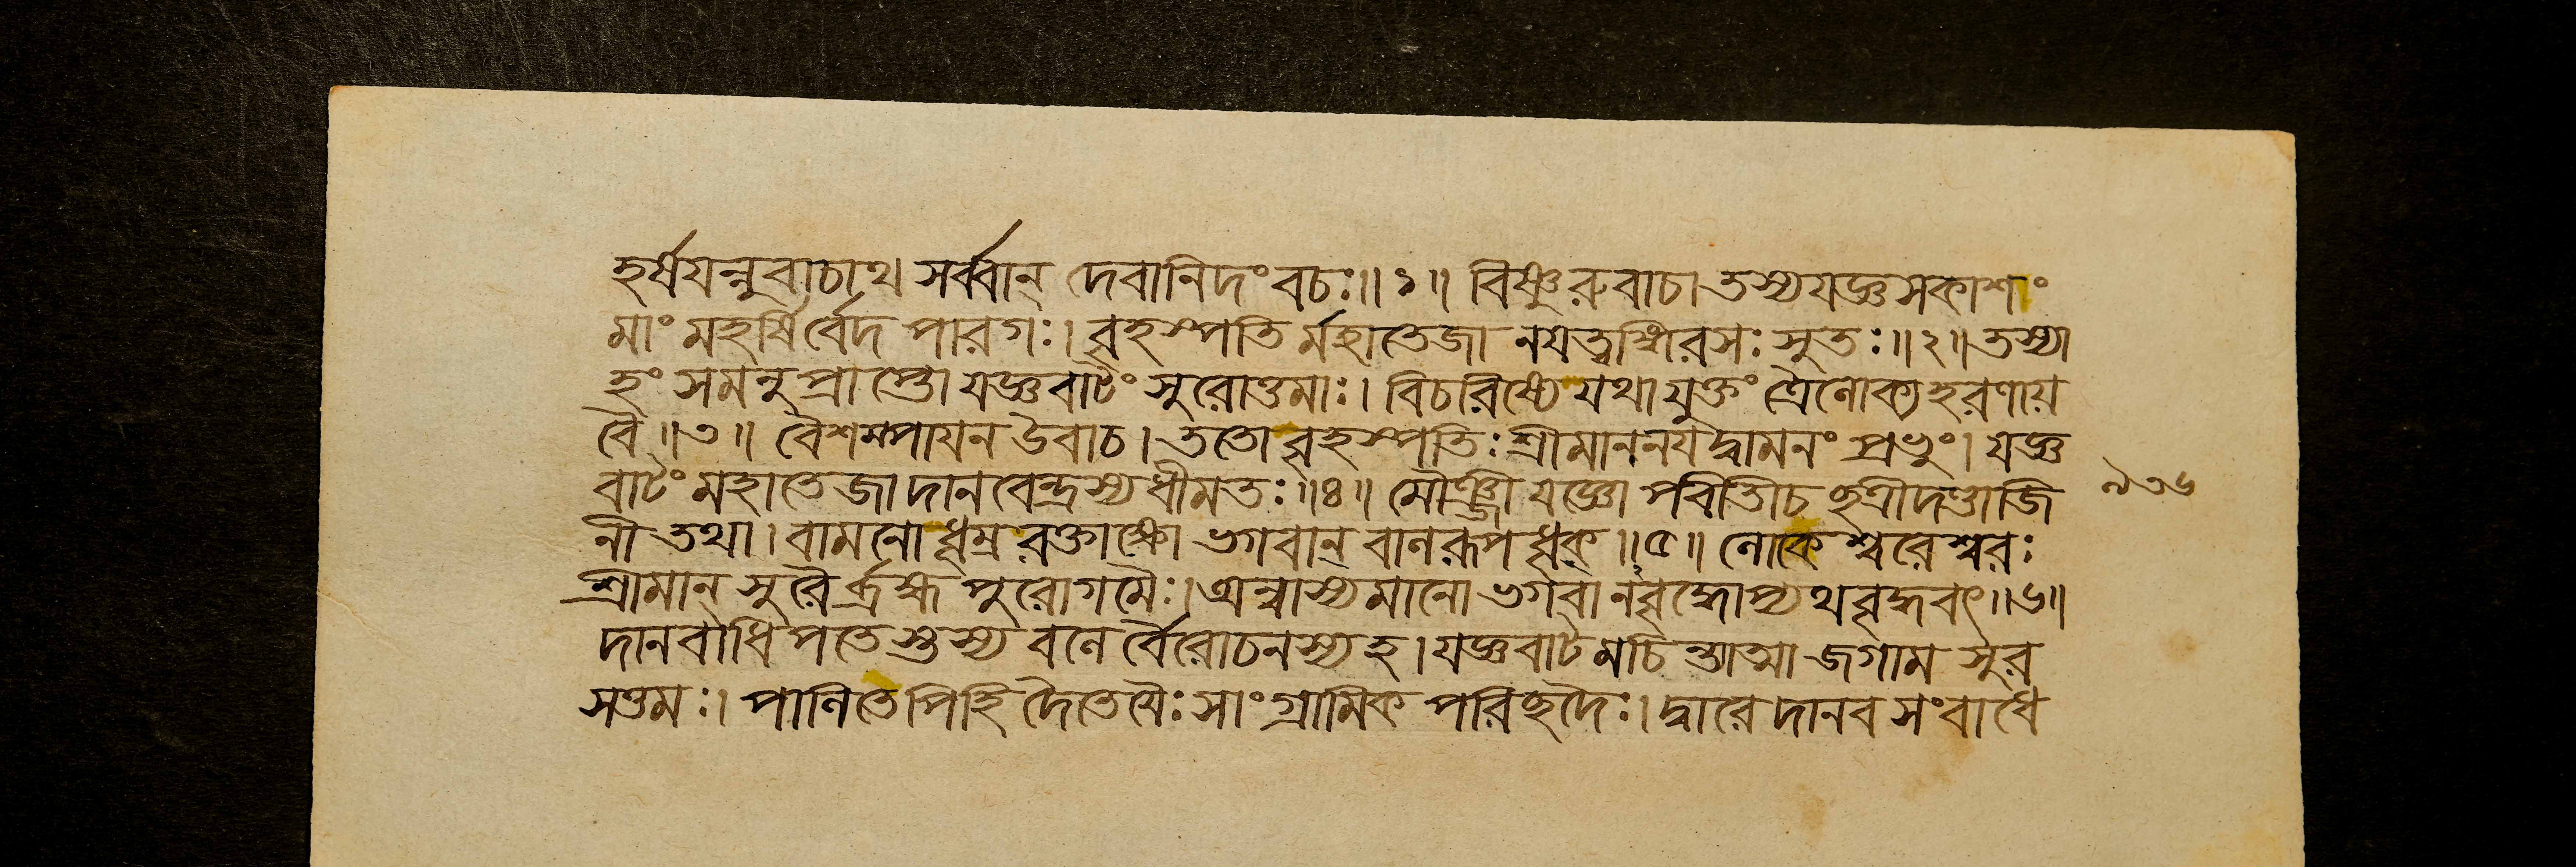 হর্ষযন্নুবাচাথ সর্ব্বান্ দেবানিদং বচঃ॥১॥ বিষ্ণুরুবাচ। তস্যযজ্ঞসকাশং
মাং মহর্ষির্বেদ পারগঃ। বৃহস্পতি র্মহাতেজা নযত্বঙ্গিরসঃ সুতঃ॥২॥ তস্যা
হং সমনুপ্রাপ্তো যজ্ঞবাটং সুরোত্তমাঃ। বিচরিষ্যে যথাযুক্তং ত্রৈলোক্যহরণায়
বৈ॥৩॥ বৈশম্পাযন উবাচ। ততো বৃহস্পতিঃ শ্রীমাননযদ্বামনং প্রভুং। যজ্ঞ
বাটং মহাতেজা দানবেন্দ্রস্যধীমতঃ॥৪॥ মৌঞ্জী যজ্ঞোপবীতীচ ছত্রীদণ্ডাজি
নী তথা। বামনো ধূম্ররক্তাক্ষো ভগবান্ বালরূপধৃক্॥৫॥ লোকেশ্বরেশ্বরঃ
শ্রীমান্ সুরৈর্ব্রহ্ম পুরোগমৈঃ। অন্বাস্যমানো ভগবান্বৃদ্ধোপ্যথবৃদ্ধবৎ॥৬॥
দানবাধিপতেস্তস্য বলের্বৈরোচনস্যহ। যজ্ঞবাটমচিন্ত্যাত্মা জগাম সুর
সত্তমঃ। পালিতেপিহি দৈতেযৈঃ সাংগ্রামিক পরিছদৈঃ। দ্বারে দানব সংবাধে
৯৩৬